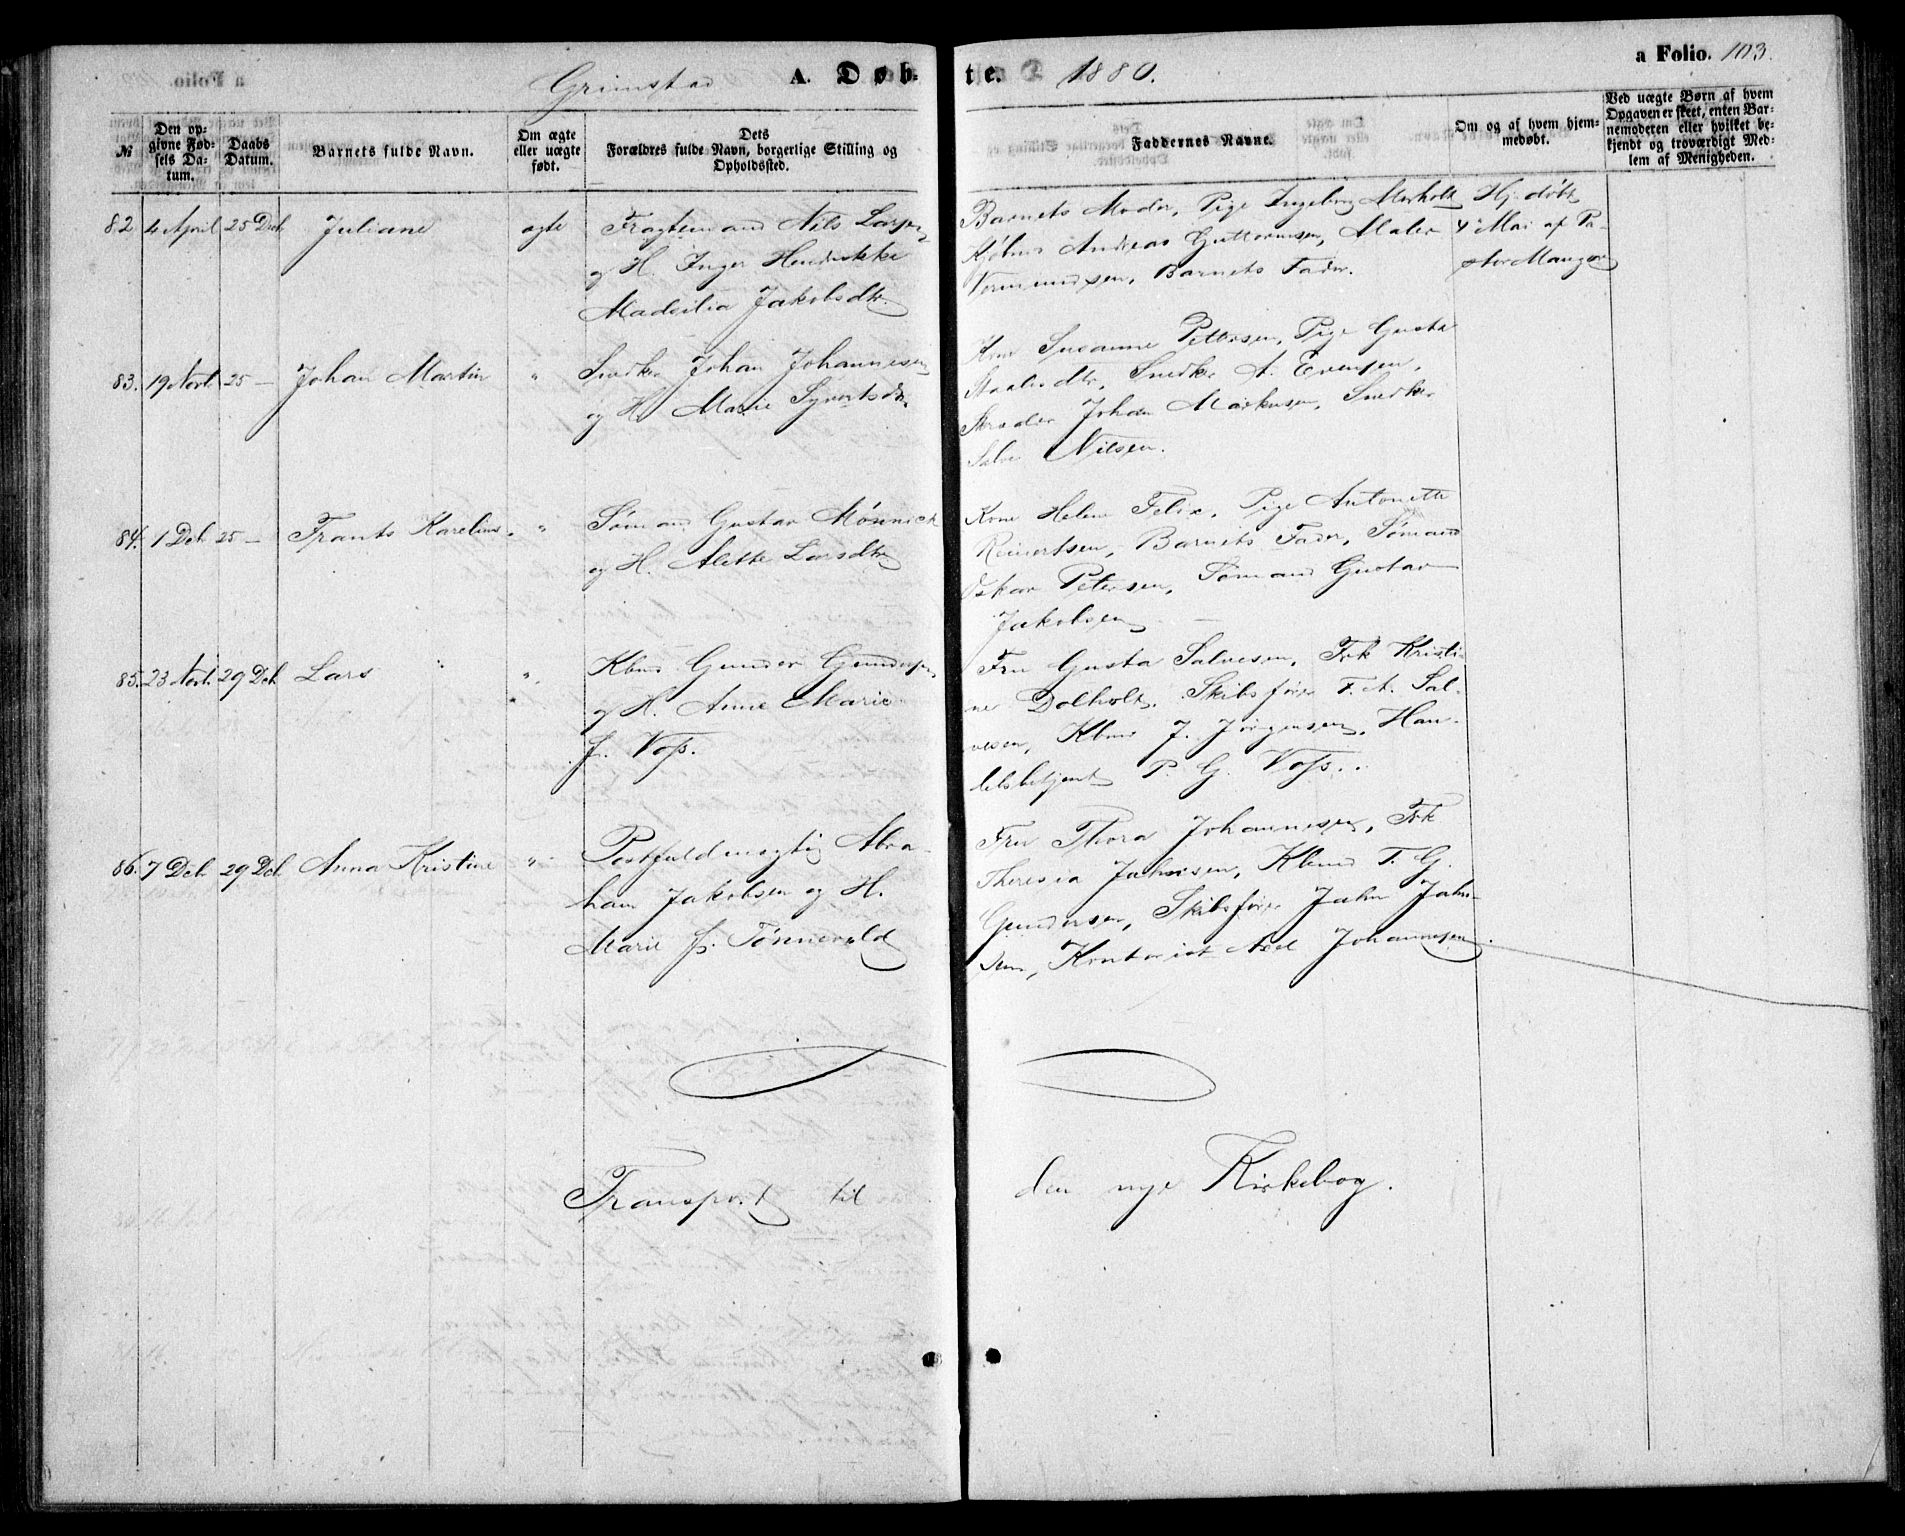 Grimstad A. Døb-
te. 1880. a Folio. 103.
№ Den op- givne Fød- sels Da- tum. Daabs Datum. Barnets fulde Navn. Om ægte eller uægte født. Dets Forældres fulde Navn, borgerlige Stilling og Opholdssted. Faddernes Navne. Om og af hvem hjem- medøbt. Ved uægte Børn af hvem Opgaven er skeet, enten Bar- nemoderen eller hvilket be- kjendt og troværdigt Med- lem af Menigheden.
82 4 April 25 Dec Juliane ægte Fragtemand Nils Larsen
og H. Inger Hendrikke
Jakobsdtr.
Barnets Moder, Pige Ingeborg Morholt
Andreas Guttormsen, Maler
Vormundsen, Barnets Fader.
Hj. døbt
4 Mai af Pa-
stor
83. 19 Novb. 25 — Johan Martin " Snedker Johan Johannesen
og H. Marie Syvertsdtr.
Kone Susanne Pettersen, Pige Gusta
Staalesdtr, Snedker A. Evensen,
Skræder Johan Markusen, Snedker
Salve Nilsen.
84. 1 Deb 25 — Frants Karelius. " Sømand Gustav Mønnich
og H. Alette Larsdtr
Kone Helene Felix, Pige Antonette
Reinertsen, Barnets Fader, Sømand
Oskar Petersen, Sømand Gustav
Jakobsen —
85. 23 Novb. 29 Deb Lars " Kbmd Gunder Gundersen
og H. Anne Marie
f. Voss.
Fru Gusta Salvesen, Frk Kristi-
ne Dolholt, Skibsfører F. A. Sal-
vesen, Kbmd J. Jørgensen, Han-
delsbetjent P. G. Voss.
86. 7 Deb. 29 Deb Anna Kristine " Postfuldmægtig Abra-
ham Jakobsen og H.
Marie f. Tønnevold
Fru Thora Johannesen, Frk
Theresia Jahnsen, Kbmd T. G.
Gundersen, Skibsfører Jahn Jahn-
sen, Kontorist Axel Johannesen.
Transport til
den nye Kirkebog.